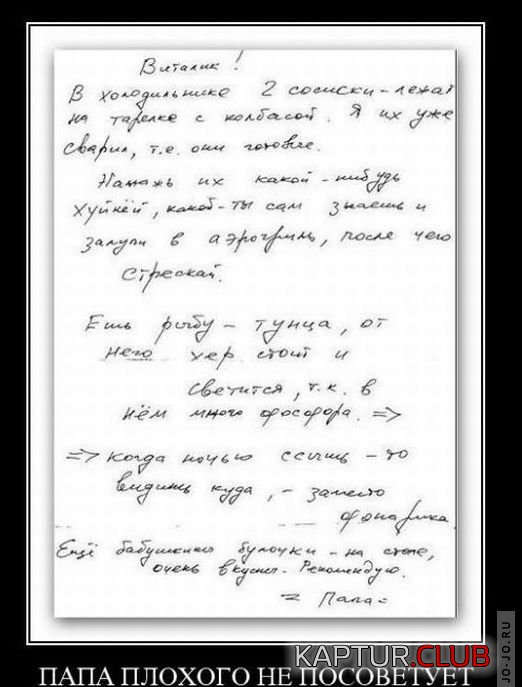 Виталик!
В холодильнике 2 сосиски - лежат
на тарелке с колбасой. Я их уже
сварил, т.е. они готовые.
Намажь их какой-нибудь
хуйнёй, какой-ты сам знаешь и
залупи в аэрогриль, после чего
стрескай.
Ешь рыбу - тунца, от
него хер стоит и
светится, т.к. в
нём много фосфора. =>
=> когда ночью ссышь - то
видишь куда, - заместо
фонарика.
Ещё бабушкины булочки - на столе,
очень вкусн. Рекомендую.
= Папа =
KAPTUR.CLUB
JO-JO.RU
ПАПА ПЛОХОГО НЕ ПОСОВЕТУЕТ